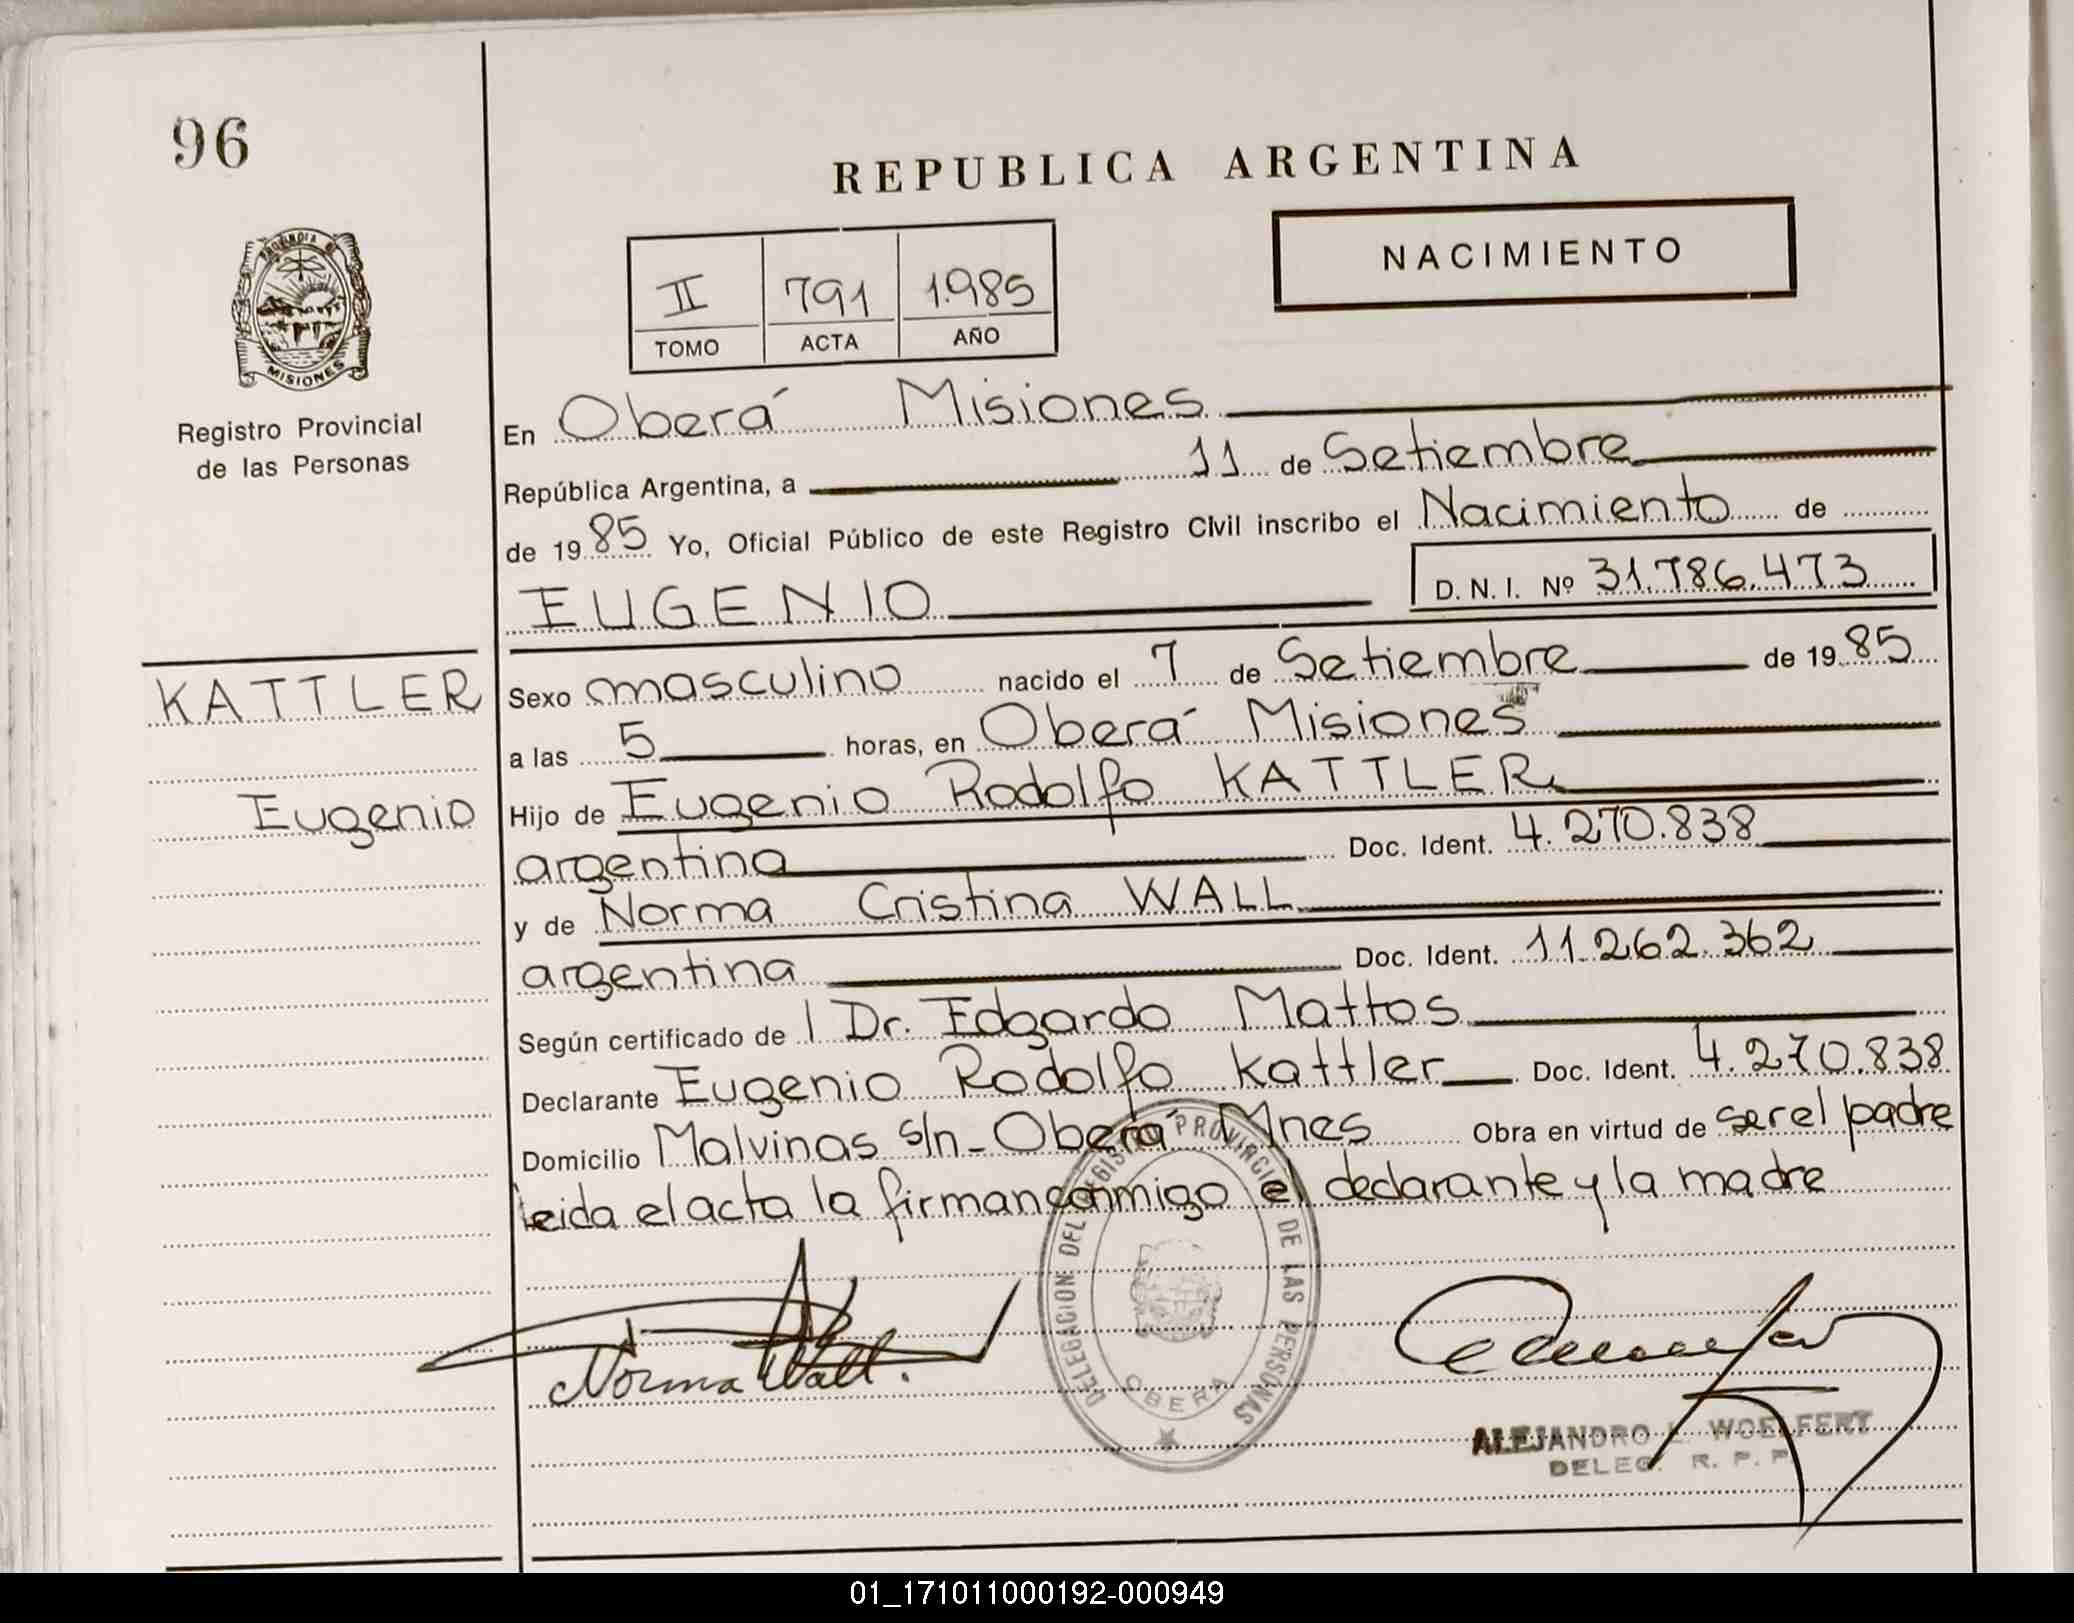 96
REPUBLICA ARGENTINA
NACIMIENTO
II 791 1.985
TOMO ACTA AÑO
PROVINCIA DE
MISIONES
Registro Provincial
de las Personas
En Oberá Misiones
República Argentina, a 11 de Setiembre
de 1985 Yo, Oficial Público de este Registro Civil inscribo el Nacimiento de
EUGENIO D. N. I. Nº 31.786.473
KATTLER
Eugenio
Sexo masculino nacido el 7 de Setiembre de 1985
a las 5 horas, en Oberá Misiones
Hijo de Eugenio Rodolfo KATTLER
argentina Doc. Ident. 4.270.838
y de Norma Cristina WALL
argentina Doc. Ident. 11.262.362
Según certificado de l Dr. Edgardo Mattos
Declarante Eugenio Rodolfo Kattler Doc. Ident. 4.270.838
Domicilio Malvinas s/n - Oberá Mnes Obra en virtud de ser el padre
leida el acta la firman conmigo el declarante y la madre
DELEGACION DEL REGISTRO PROVINCIAL DE LAS PERSONAS
OBERA
Norma Wall.
ALEJANDRO L. WOELFERT
DELEG. R. P. P.
01_171011000192-000949